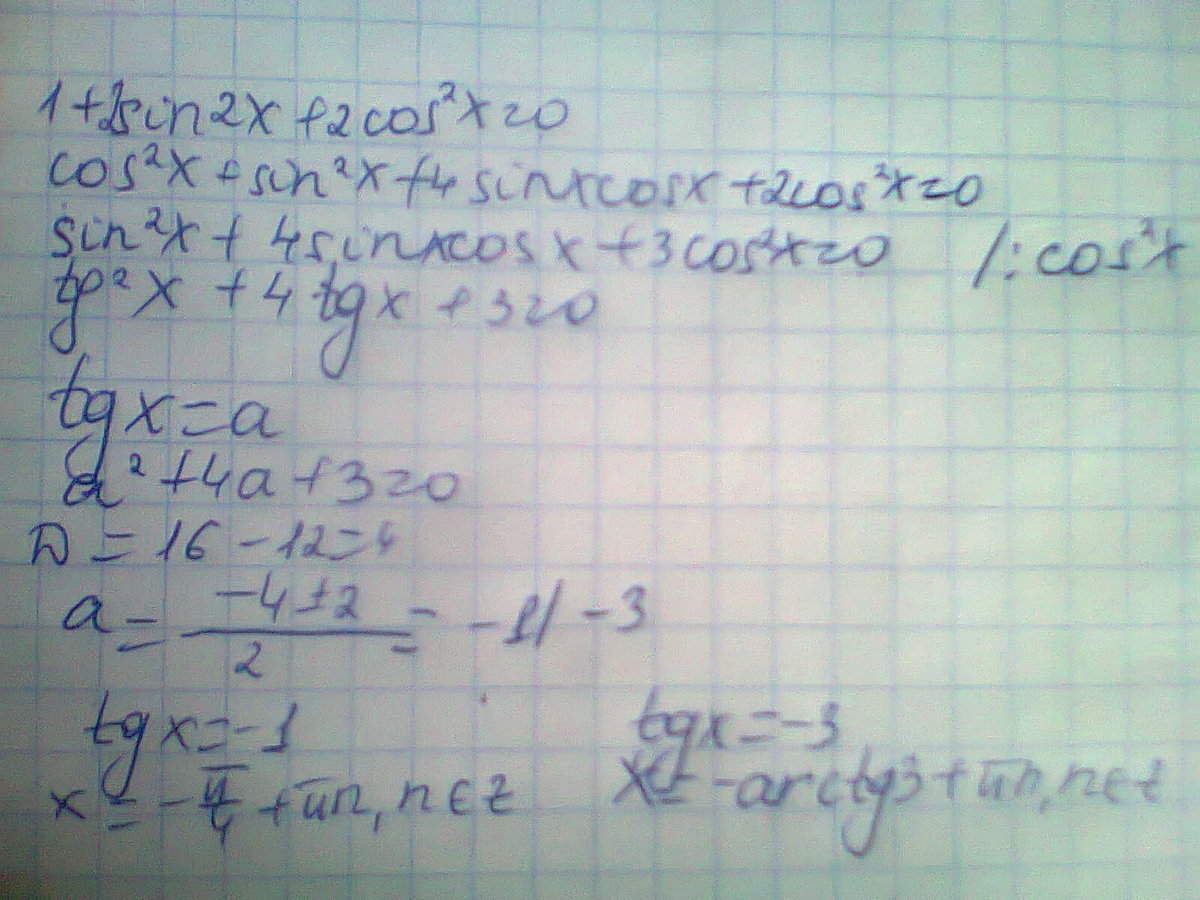 1+2sin2x+2cos²x=0
cos²x+sin²x+4sinxcosx+2cos²x=0
sin²x+4sinxcosx+3cos²x=0 /:cos²x
tg²x+4tgx+3=0
tgx=a
a²+4a+3=0
D=16-12=4
a=(-4±2)/2=-1/-3
tgx=-1 tgx=-3
x=-π/4+πn, n∈z x=-arctg3+πn, n∈z